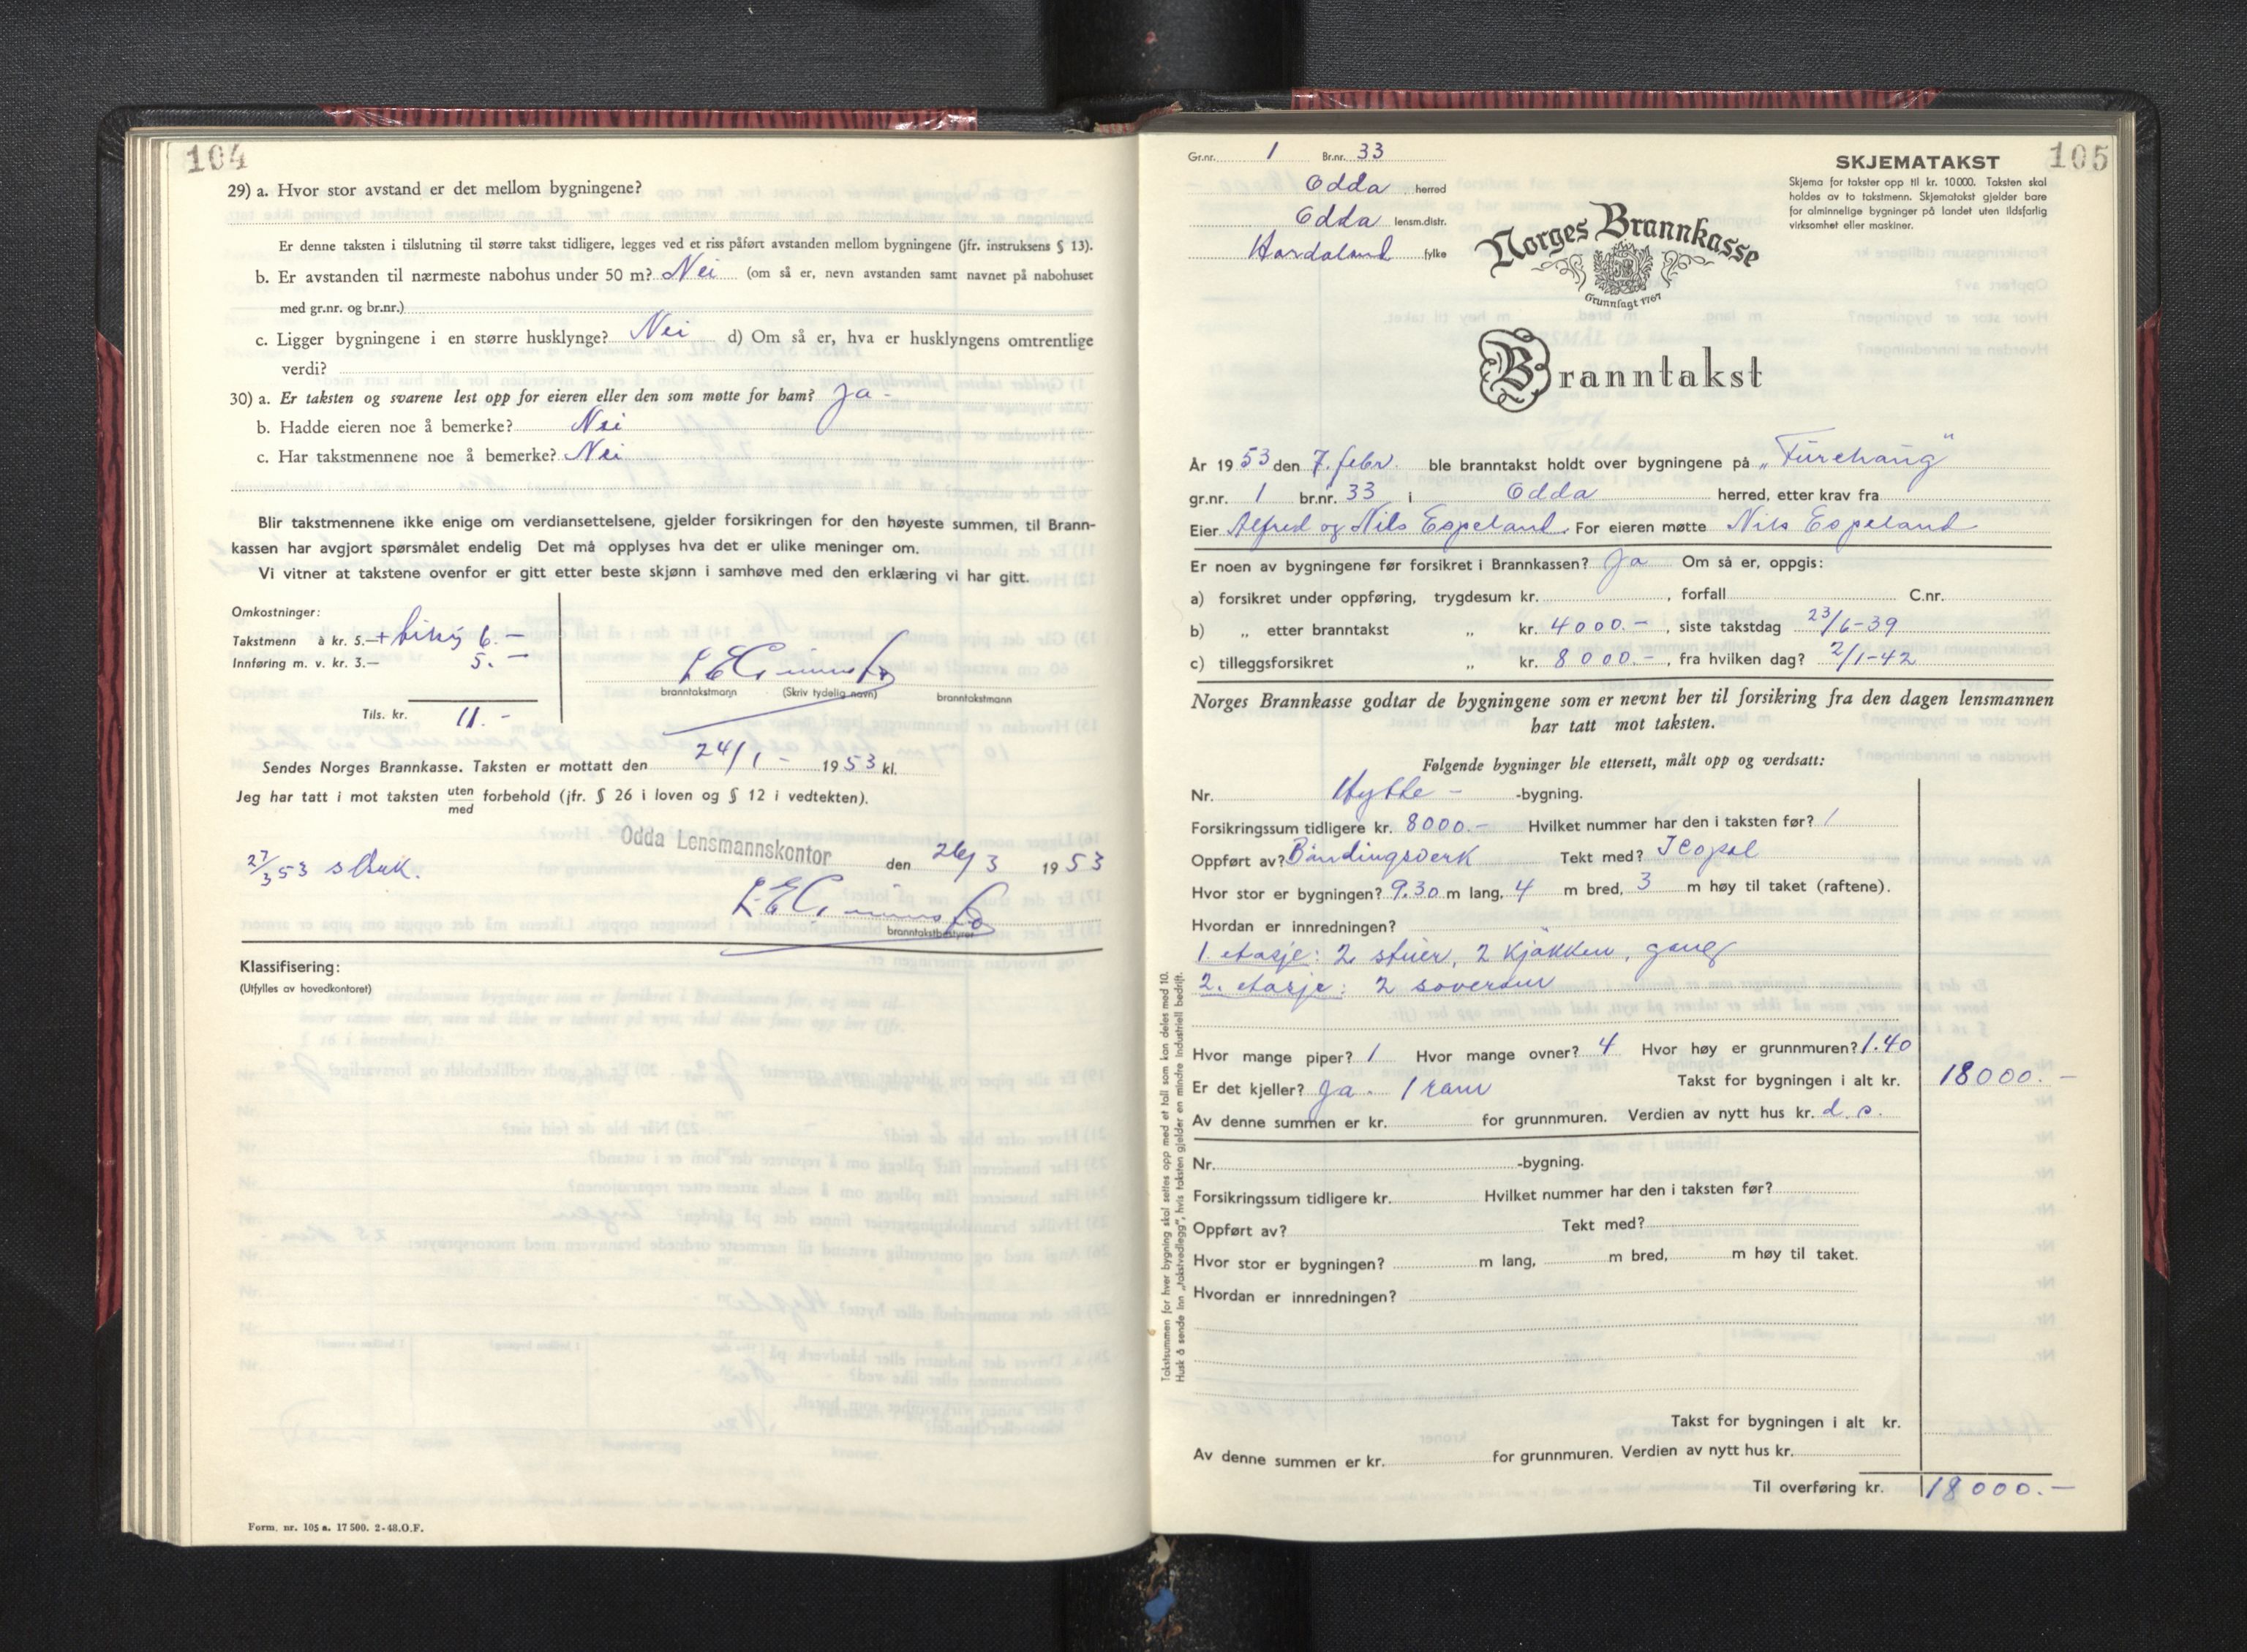 104
29) a. Hvor stor avstand er det mellom bygningene?
Er denne taksten i tilslutning til større takst tidligere, legges ved et riss påført avstanden mellom bygningene (jfr. instruksens § 13).
b. Er avstanden til nærmeste nabohus under 50 m? Nei (om så er, nevn avstanden samt navnet på nabohuset
med gr.nr. og br.nr.)
c. Ligger bygningene i en større husklynge? Nei d) Om så er, hva er husklyngens omtrentlige
verdi?
30) a. Er taksten og svarene lest opp for eieren eller den som møtte for ham? Ja -
b. Hadde eieren noe å bemerke? Nei
c. Har takstmennene noe å bemerke? Nei
Blir takstmennene ikke enige om verdiansettelsene, gjelder forsikringen for den høyeste summen, til Brann-
kassen har avgjort spørsmålet endelig Det må opplyses hva det er ulike meninger om.
Vi vitner at takstene ovenfor er gitt etter beste skjønn i samhøve med den erklæring vi har gitt.
Omkostninger:
Takstmenn à kr. 5.— + 6.—
Innføring m. v. kr. 3.— 5.—
branntakstmann (Skriv tydelig navn) branntakstmann
Tils. kr. 11.-
Sendes Norges Brannkasse. Taksten er mottatt den 24/1 - 1953 kl.
Jeg har tatt i mot taksten uten/med forbehold (jfr. § 26 i loven og § 12 i vedtekten).
Odda Lensmannskontor den 26/3 1953
27/3 53
branntakstbestyrer
Klassifisering:
(Utfylles av hovedkontoret)
Form. nr. 105 a. 17 500. 2-48.O.F.
Gr.nr. 1 Br.nr. 33
Odda herred
Odda lensm.distr.
Hordaland fylke
SKJEMATAKST 105
Skjema for takster opp til kr. 10000. Taksten skal
holdes av to takstmenn. Skjematakst gjelder bare
for alminnelige bygninger på landet uten ildsfarlig
virksomhet eller maskiner.
Norges Brannkasse
Grunnlagt 1767
Branntakst
År 1953 den 7. febr. ble branntakst holdt over bygningene på „Furehaug"
gr.nr. 1 br.nr. 33 i Odda herred, etter krav fra
Eier Alfred og Nils Espeland. For eieren møtte Nils Espeland
Er noen av bygningene før forsikret i Brannkassen? Ja Om så er, oppgis:
a) forsikret under oppføring, trygdesum kr. , forfall C.nr.
b) „ etter branntakst „ kr. 4000.- , siste takstdag 23/6-39
c) tilleggsforsikret „ kr. 8000.- , fra hvilken dag? 2/1-42
Norges Brannkasse godtar de bygningene som er nevnt her til forsikring fra den dagen lensmannen
har tatt mot taksten.
Følgende bygninger ble ettersett, målt opp og verdsatt:
Nr. Hytte - -bygning.
Forsikringssum tidligere kr. 8000.- Hvilket nummer har den i taksten før? 1
Oppført av? Bindingsverk Tekt med? Icopal
Hvor stor er bygningen? 9.30 m lang, 4 m bred, 3 m høy til taket (raftene).
Hvordan er innredningen?
1. etasje: 2 stuer, 2 kjøkken, gang
2. etasje: 2 soverom
Hvor mange piper? 1 Hvor mange ovner? 4 Hvor høy er grunnmuren? 1.40
Er det kjeller? Ja. 1 rom Takst for bygningen i alt kr. 18000.-
Av denne summen er kr. for grunnmuren. Verdien av nytt hus kr. d.s.
Nr. -bygning.
Forsikringssum tidligere kr. Hvilket nummer har den i taksten før?
Oppført av? Tekt med?
Hvor stor er bygningen? m lang, m bred, m høy til taket.
Hvordan er innredningen?
Takst for bygningen i alt kr.
Av denne summen er kr. for grunnmuren. Verdien av nytt hus kr.
Til overføring kr. 18000.-
Takstsummen for hver bygning skal settes opp med et tall som kan deles med 10.
Husk å sende inn „takstvedlegg", hvis taksten gjelder en mindre industriell bedrift.